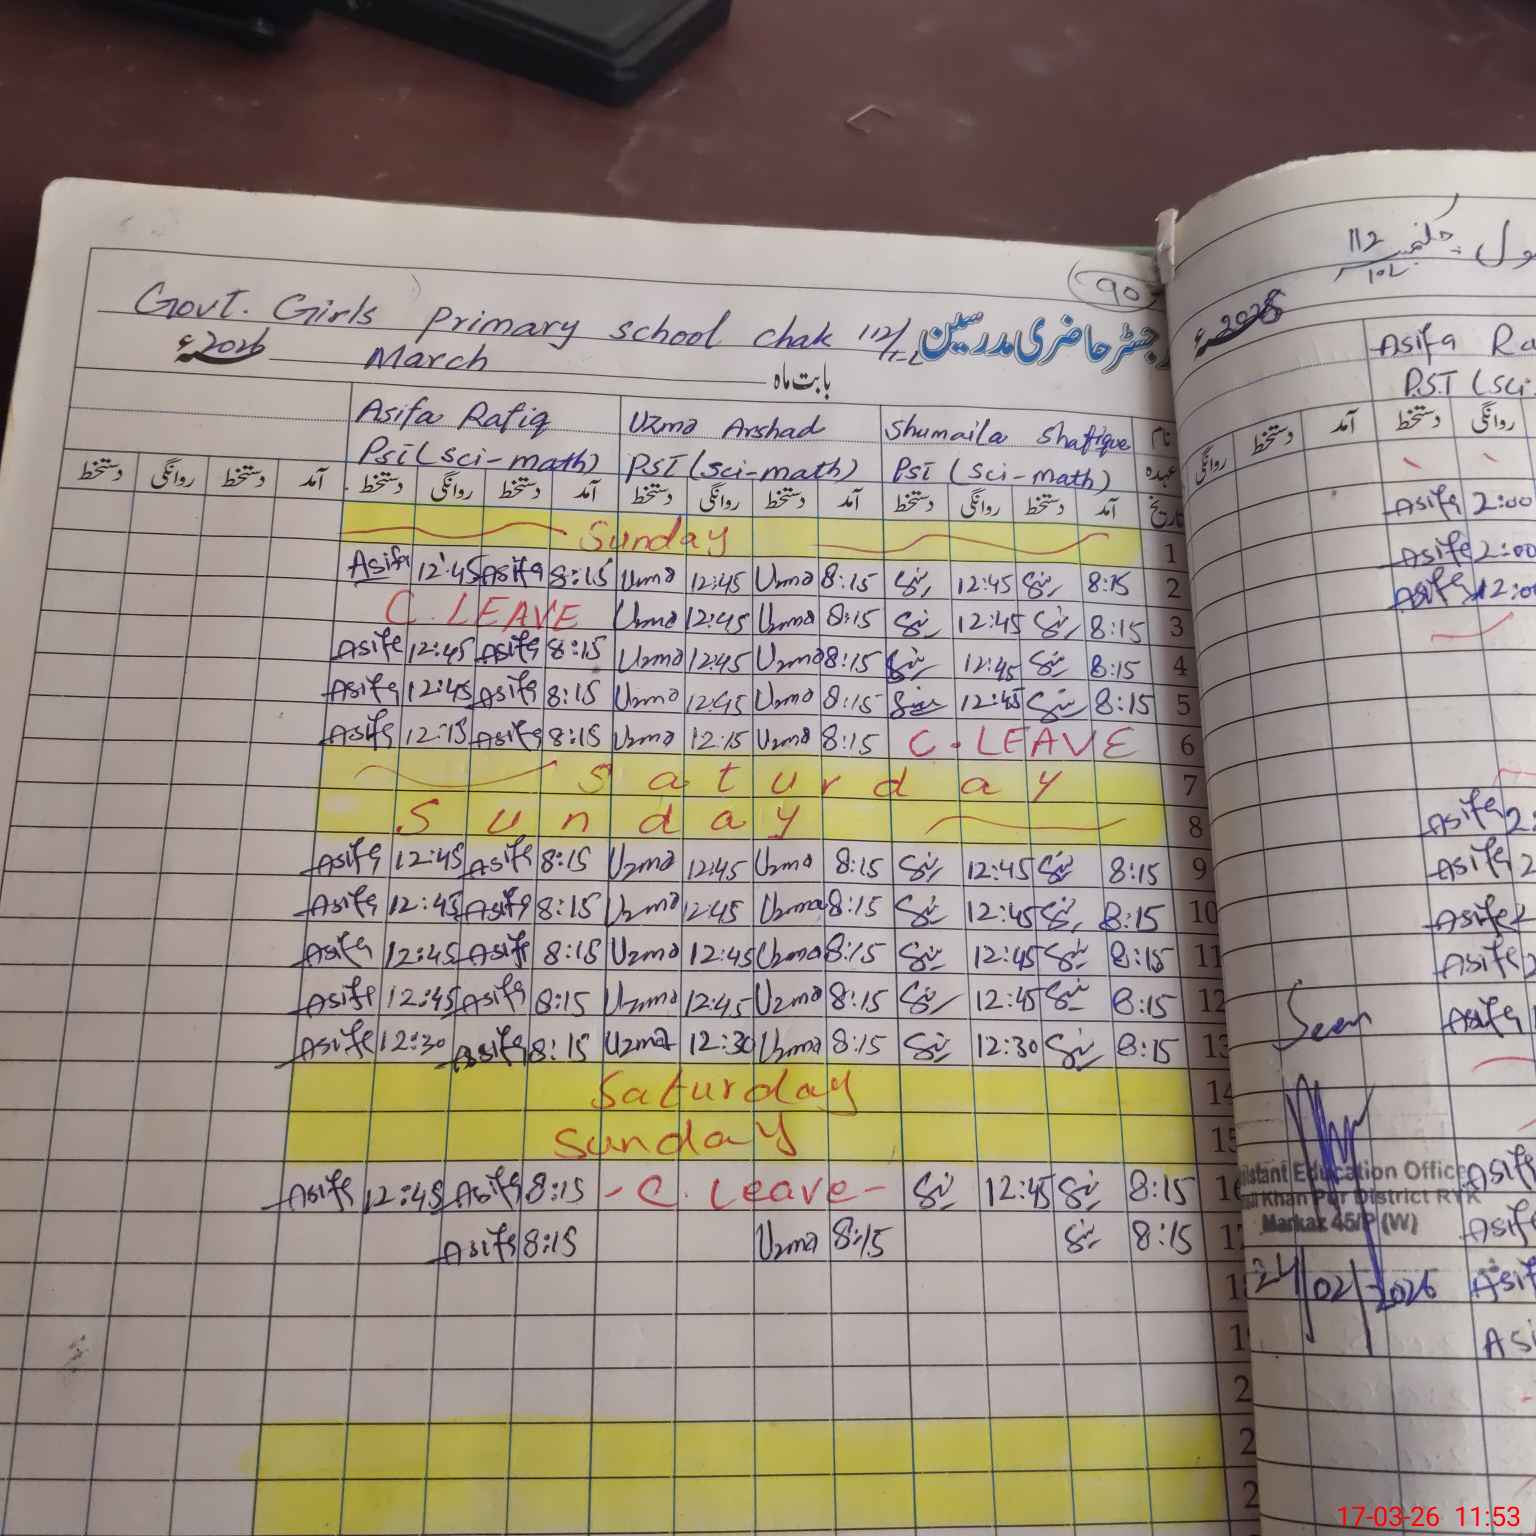 90
Govt. Girls Primary school chak 112/1-L رجسٹر حاضری مدرسین
March 2026ء بابت ماہ
Asifa Rafiq Uzma Arshad Shumaila Shafique نام
PST (sci-math) PST (sci-math) PST (sci-math) عہدہ
دستخط روانگی دستخط آمد دستخط روانگی دستخط آمد دستخط روانگی دستخط آمد دستخط روانگی دستخط آمد تاریخ
Sunday 1
Asifa 12:45 Asifa 8:15 Uzma 12:45 Uzma 8:15 12:45 8:15 2
C. LEAVE Uzma 12:45 Uzma 8:15 12:45 8:15 3
Asifa 12:45 Asifa 8:15 Uzma 12:45 Uzma 8:15 12:45 8:15 4
Asifa 12:45 Asifa 8:15 Uzma 12:45 Uzma 8:15 12:45 8:15 5
Asifa 12:15 Asifa 8:15 Uzma 12:15 Uzma 8:15 C. LEAVE 6
Saturday 7
Sunday 8
Asifa 12:45 Asifa 8:15 Uzma 12:45 Uzma 8:15 12:45 8:15 9
Asifa 12:45 Asifa 8:15 Uzma 12:45 Uzma 8:15 12:45 8:15 10
Asifa 12:45 Asifa 8:15 Uzma 12:45 Uzma 8:15 12:45 8:15 11
Asifa 12:45 Asifa 8:15 Uzma 12:45 Uzma 8:15 12:45 8:15 12
Asifa 12:30 Asifa 8:15 Uzma 12:30 Uzma 8:15 12:30 8:15 13
Saturday 14
Sunday 15
Asifa 12:45 Asifa 8:15 - C. Leave - 12:45 8:15 16
Asifa 8:15 Uzma 8:15 8:15
112
Asifa Ra
PST (sci
روانگی دستخط آمد دستخط روانگی
Asifa 2:00
Asifa 2:00
Asifa 12:00
Asifa 2:
Asifa 2
Asifa
Asifa
Seen Asifa
istant Education Office
Khan Pur District RYK
Markaz 45/P (W)
24/02/2026
17-03-26 11:53